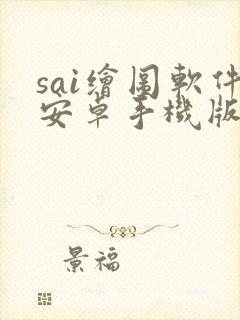 sai繪圖軟件
安卓手機版
景福